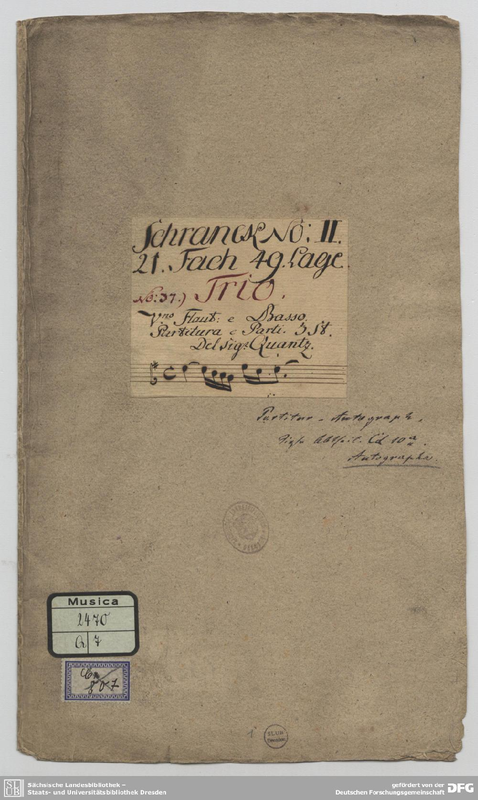 Schranck No: II.
21. Fach 49. Lage.
No: 37.) Trio.
Vno Flaut: e Basso.
Partitura e Parti. 3 St.
Del Sigr. Quantz.
Partitur - Autograph.
Autographe.
Musica
2470
Q 7
1
SLUB
Sächsische Landesbibliothek –
Staats- und Universitätsbibliothek Dresden
gefördert von der
Deutschen Forschungsgemeinschaft
DFG